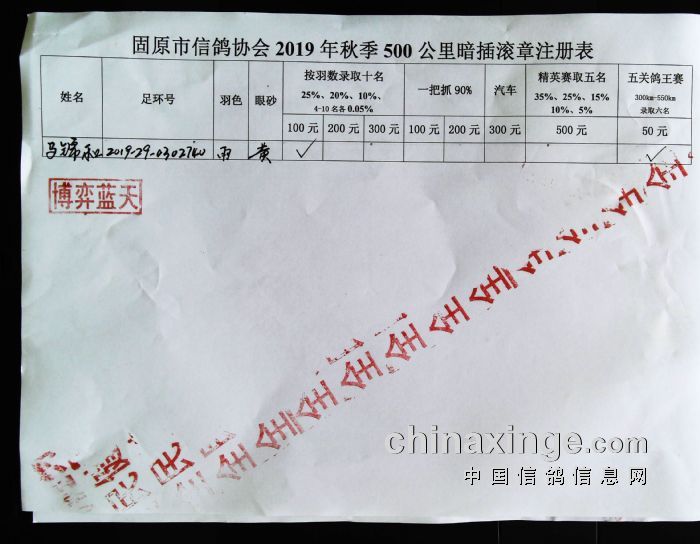 固原市信鸽协会 2019 年秋季 500 公里暗插滚章注册表
姓名 足环号 羽色 眼砂 按羽数录取十名 一把抓 90% 汽车 精英赛取五名 五关鸽王赛
25%、20%、10%、 35%、25%、15% 300km-550km
4-10 名各 0.05% 10%、5% 录取六名
100 元 200 元 300 元 100 元 200 元 300 元 500 元 50 元
马 2019-29-0302740 雨 黄 ✓ ✓
博弈蓝天
全全全全全全全
chinaxinge.com
中国信鸽信息网